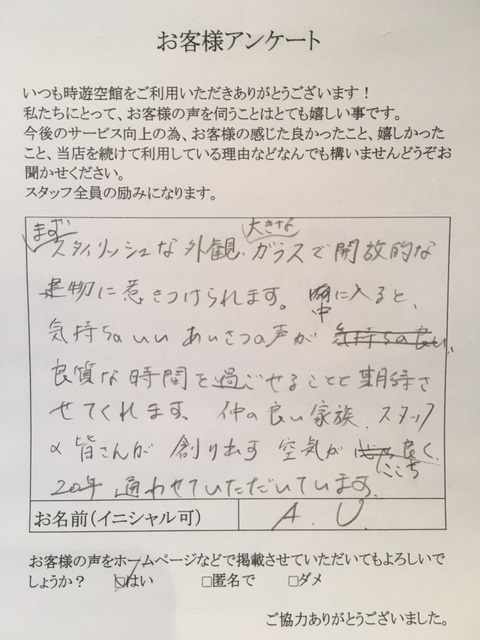 お客様アンケート
いつも時遊空館をご利用いただきありがとうございます！
私たちにとって、お客様の声を伺うことはとても嬉しい事です。
今後のサービス向上の為、お客様の感じた良かったこと、嬉しかった
こと、当店を続けて利用している理由などなんでも構いませんどうぞお
聞かせください。
スタッフ全員の励みになります。
まず 大きな
スタイリッシュな外観、ガラスで開放的な
建物に惹きつけられます。中に入ると、
気持ちのいいあいさつの声が 気持ちの良い、
良質な時間を過ごせることを期待さ
せてくれます。仲の良い家族、スタッフ
の皆さんが創り出す空気が良く、
ここち
20年通わせていただいています。
お名前(イニシャル可) A. U.
お客様の声をホームページなどで掲載させていただいてもよろしいで
しょうか？ □はい □匿名で □ダメ
ご協力ありがとうございました。